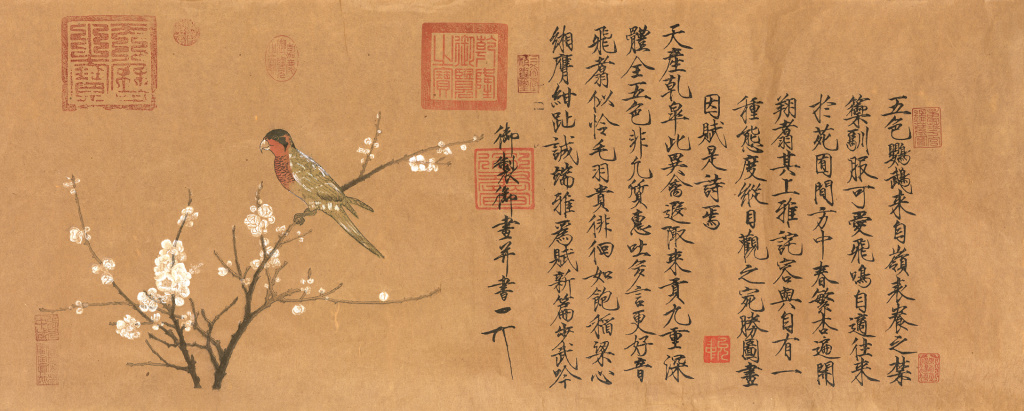 五色鸚鵡來自嶺表養之禁
籞馴服可愛飛鳴自適往來
於苑囿間方中春繁杏遍開
翔翥其上雅詫容與自有一
種態度縱目觀之宛勝圖畫
因賦是詩焉
天產乾皋此異禽遐陬來貢九重深
體全五色非凡質惠吐多言更好音
飛翥似憐毛羽貴徘徊如飽稻粱心
緗膺紺趾誠端雅為賦新篇步武吟
御製御畫并書